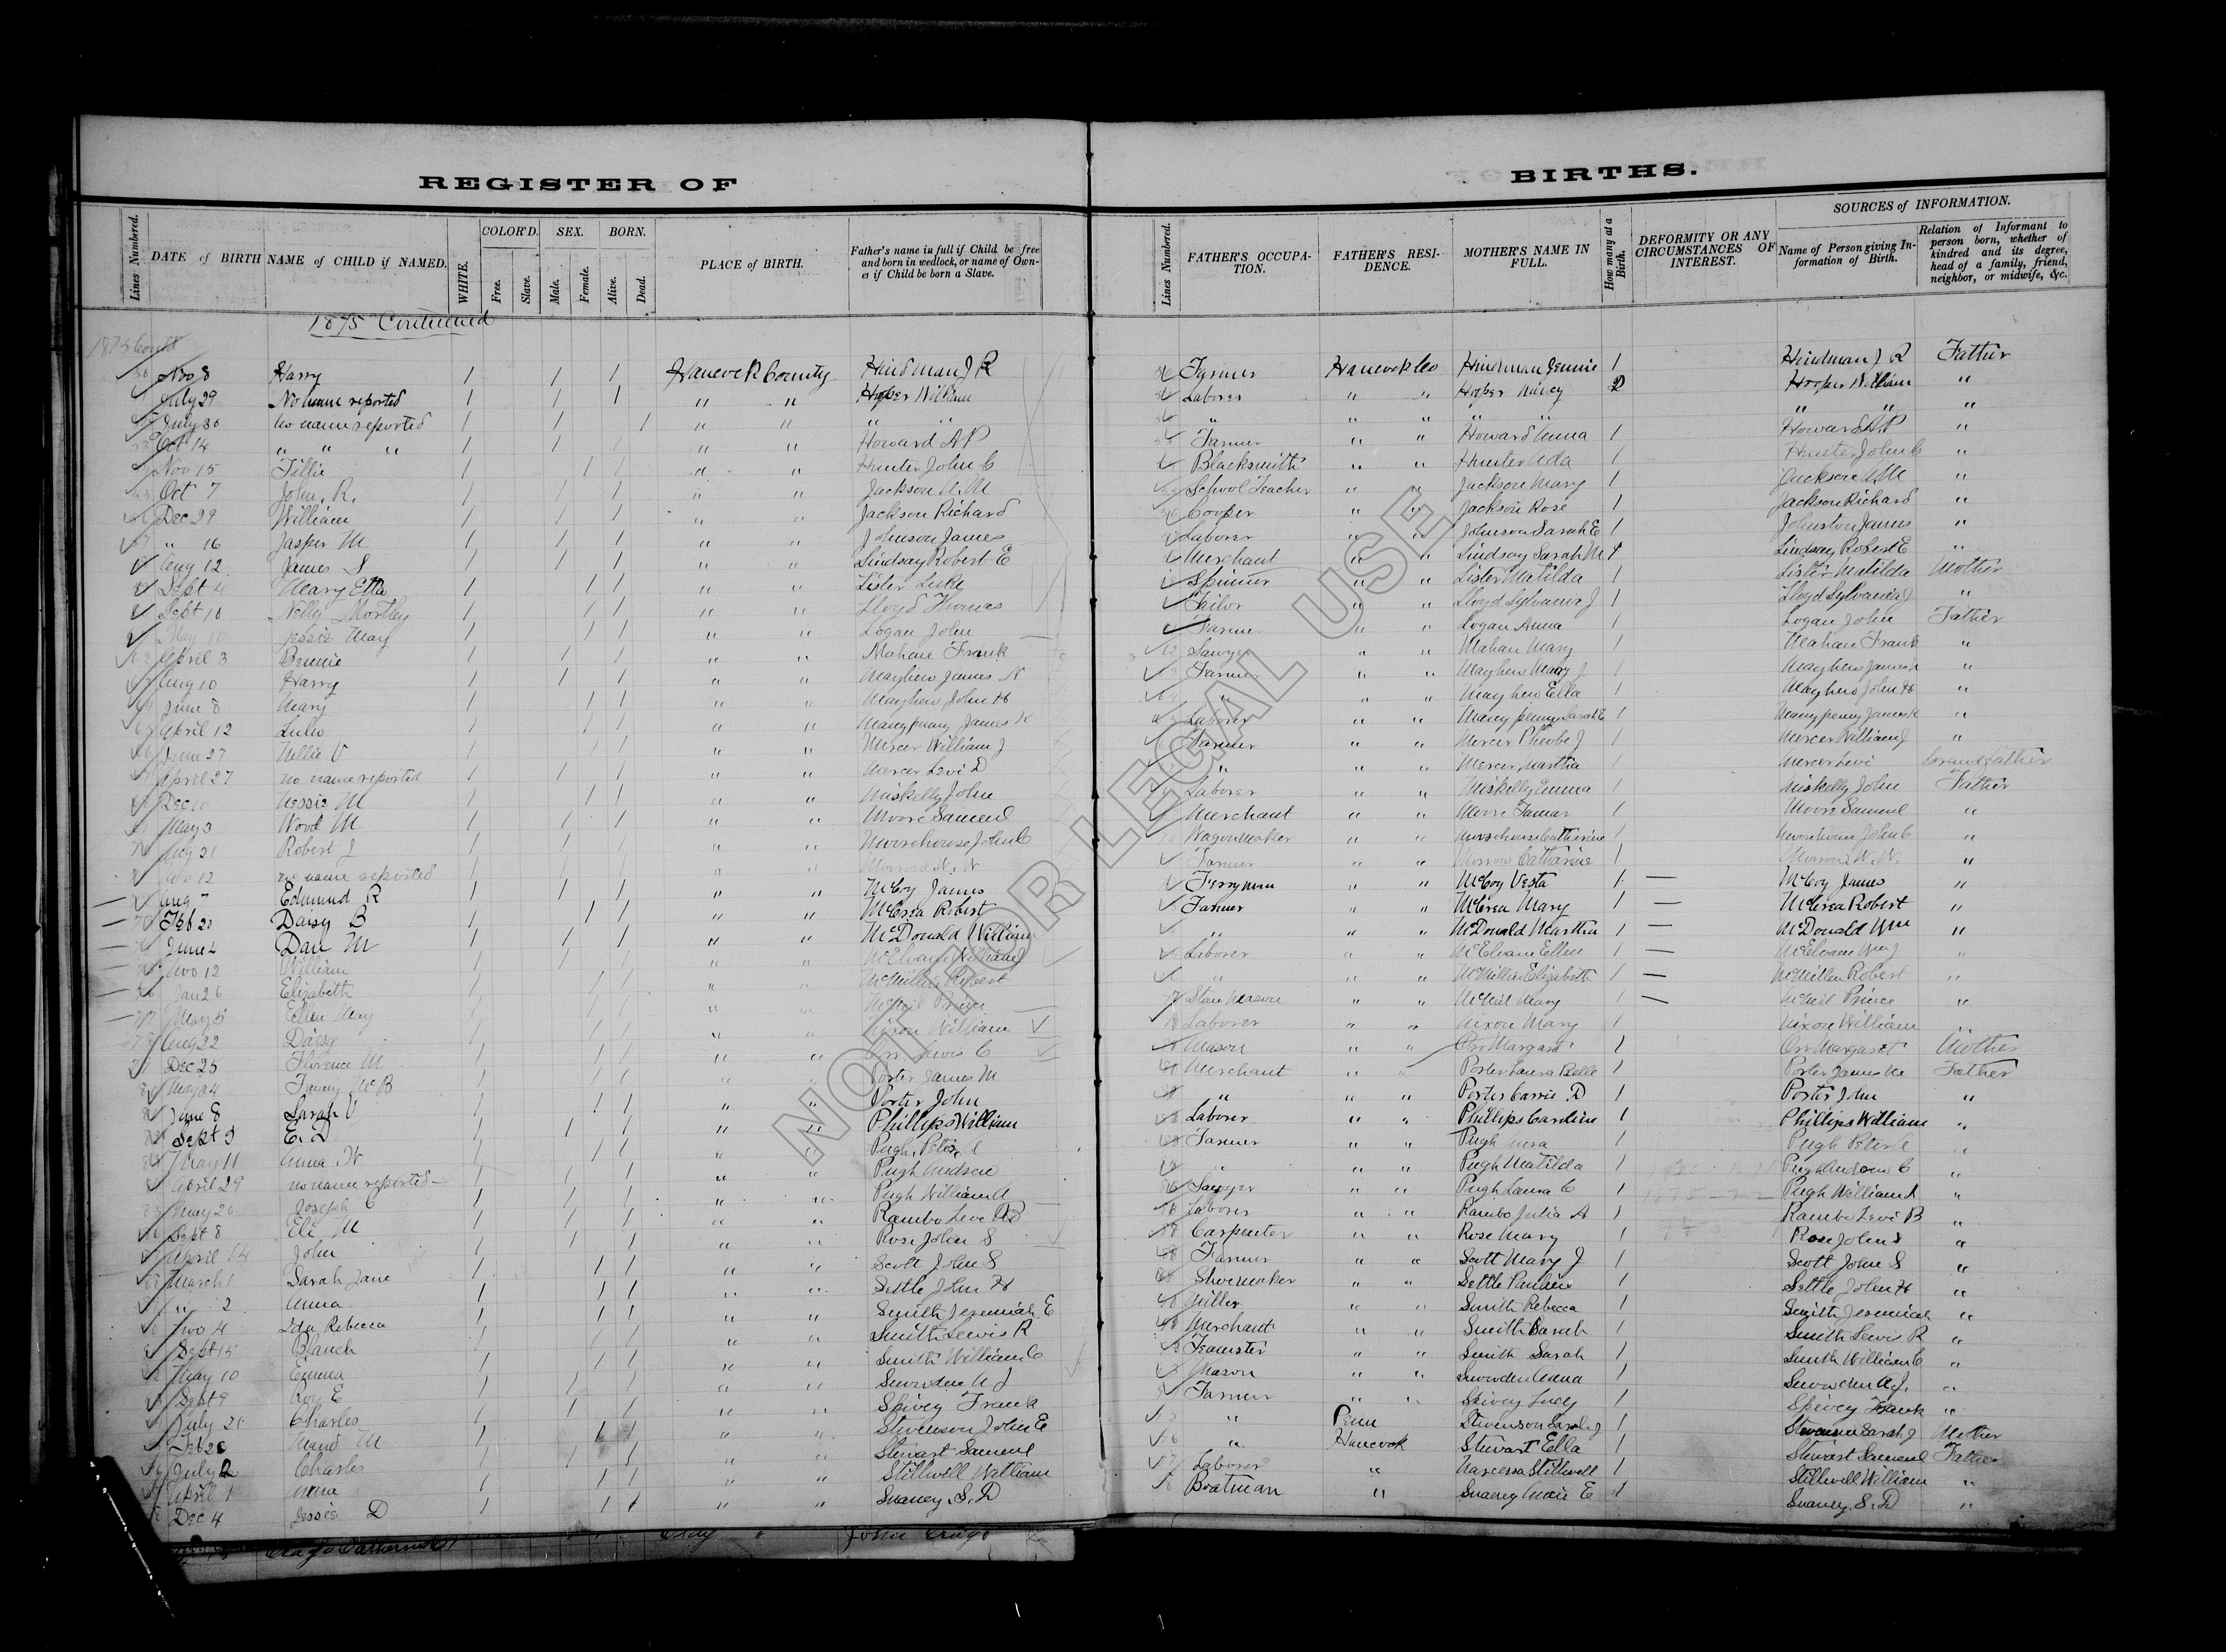 REGISTER OF BIRTHS.
Lines Numbered. DATE of BIRTH NAME of CHILD if NAMED. WHITE. COLOR'D. Free. Slave. SEX. Male. Female. BORN. Alive. Dead. PLACE of BIRTH. Father's name in full if Child be free and born in wedlock, or name of Owner if Child be born a Slave. Lines Numbered. FATHER'S OCCUPATION. FATHER'S RESIDENCE. MOTHER'S NAME IN FULL. How many at a Birth. DEFORMITY OR ANY CIRCUMSTANCES OF INTEREST. SOURCES of INFORMATION. Name of Person giving Information of Birth. Relation of Informant to person born, whether of kindred and its degree, head of a family, friend, neighbor, or midwife, &c.
1875 Continued
1875 Contd
Nov 8 Harry 1 1 1 Hancock County Hindman J R Farmer Hancock Co Hindman Jennie 1 Hindman J R Father
July 29 No name reported 1 1 1 " " Hooper William Laborer " " Hooper Nancy 2 Hooper William "
July 30 no name reported 1 1 1 " " " " " " " " " " " "
Oct 14 " " " 1 1 1 " " Howard A P Farmer " " Howard Anna 1 Howard A P "
Nov 15 Tillie 1 1 1 " " Hunter John C Blacksmith " " Hunter Ada 1 Hunter John C "
Oct 7 John. R. 1 1 1 " " Jackson A. M School Teacher " " Jackson Mary 1 Jackson A M "
Dec 29 William 1 1 1 " " Jackson Richard Cooper " " Jackson Rose 1 Jackson Richard "
" 16 Jasper M 1 1 1 " " Johnson James Laborer " " Johnson Sarah E 1 Johnston James "
Aug 12 James S 1 1 1 " " Lindsay Robert E Merchant " " Lindsay Sarah M 1 Lindsay Robert E "
Sept 4 Mary Etta 1 1 1 " " Lister Luke Spinner " " Lister Matilda 1 Lister Matilda Mother
Sept 10 Nelly Mortley 1 1 1 " " Lloyd Thomas Tailor " " Lloyd Sylvania J 1 Lloyd Sylvania J "
May 10 Jessie May 1 1 1 " " Logan John Farmer " " Logan Anna 1 Logan John Father
April 3 Bennie 1 1 1 " " Mahan Frank Sawyer " " Mahan Mary 1 Mahan Frank "
Aug 10 Harry 1 1 1 " " Mayhew James N Farmer " " Mayhew Mary J 1 Mayhew James N "
June 8 Mary 1 1 1 " " Mayhew John H " " " Mayhew Ella 1 Mayhew John H "
April 12 Lulu 1 1 1 " " Manypenny James K Laborer " " Manypenny Sarah E 1 Manypenny James K "
June 27 Nellie V 1 1 1 " " Mercer William J Farmer " " Mercer Pheobe J 1 Mercer William J "
April 27 no name reported 1 1 1 " " Mercer Levi D " " " Mercer Martha 1 Mercer Levi Grand Father
Dec 10 Nessie M 1 1 1 " " Miskelly John Laborer " " Miskelly Emma 1 Miskelly John Father
May 3 Wood M 1 1 1 " " Moore Samuel Merchant " " Moore Tamar 1 Moore Samuel "
Aug 21 Robert J 1 1 1 " " Moorehouse John C Wagonmaker " " Moorehouse Catherine 1 Moorehouse John C "
Nov 12 no name reported 1 1 1 " " Morrow N. W Farmer " " Morrow Catharine 1 Morrow N. W. "
Aug " Edmund R 1 1 1 " " McCoy James Ferryman " " McCoy Vesta 1 — McCoy James "
Feb 20 Daisy B 1 1 1 " " McCrea Robert Farmer " " McCrea Mary 1 — McCrea Robert "
June 4 Dan M 1 1 1 " " McDonald William " " " McDonald Martha 1 — McDonald Wm "
Nov 12 William 1 1 1 " " McElvain William J Laborer " " McElvain Ellen 1 — McElvain Wm J "
Jan 26 Elizabeth 1 1 1 " " McMillen Robert " " " McMillen Elizabeth 1 — McMillen Robert "
May 5 Ellen May 1 1 1 " " McNeil Prince Stone Mason " " McNeil Mary 1 — McNeil Prince "
Aug 22 Daisy 1 1 1 " " Nixon William Laborer " " Nixon Mary 1 Nixon William "
Dec 25 Florence M 1 1 1 " " Orr Lewis C Mason " " Orr Margaret 1 Orr Margaret Mother
May 24 Fanny McB 1 1 1 " " Porter James M Merchant " " Porter Laura Belle 1 Porter James M Father
June 8 Sarah V 1 1 1 " " Porter John " " " Porter Carrie D 1 Porter John "
Sept 3 E. D 1 1 1 " " Phillips William Laborer " " Phillips Caroline 1 Phillips William "
May 11 Anna. W 1 1 1 " " Pugh, Peter Farmer " " Pugh 1 Pugh Peter "
April 29 no name reported 1 1 1 " " Pugh " " " Pugh Matilda 1 Pugh "
May 26 Joseph C 1 1 1 " " Pugh William A Sawyer " " Pugh Laura C 1 Pugh William A "
Sept 8 Eli M 1 1 1 " " Rambo Levi B Laborer " " Rambo Julia A 1 Rambo Levi B "
April 14 John 1 1 1 " " Rose John S Carpenter " " Rose Mary 1 Rose John S "
March 1 Sarah Jane 1 1 1 " " Scott John S Farmer " " Scott Mary J 1 Scott John S "
" 2 Anna 1 1 1 " " Settle John H Shoemaker " " Settle Pauline 1 Settle John H "
Nov 4 Ida Rebecca 1 1 1 " " Smith Jeremiah E Miller " " Smith Rebecca 1 Smith Jeremiah "
Sept 15 Blanch 1 1 1 " " Smith Lewis R Merchant " " Smith Sarah 1 Smith Lewis R "
May 10 Emma 1 1 1 " " Smith William C Teamster " " Smith Sarah 1 Smith William C "
Sept 9 Roy E 1 1 1 " " Snowden A J Mason " " Snowden Anna 1 Snowden A. J. "
July 20 Charles 1 1 1 " " Spivey Frank Farmer " " Spivey Lucy 1 Spivey Frank "
Feb 20 Maud M 1 1 1 " " Stevenson John E " Penn Stevenson Sarah J 1 Stevenson Sarah J Mother
July 2 Charles 1 1 1 " " Stewart Samuel " Hancock Stewart Ella 1 Stewart Samuel Father
April 1 Anna 1 1 1 " " Stillwell William Laborer " Narcessa Stillwell 1 Stillwell William "
Dec 4 Jessie D 1 1 1 " " Swaney, S. D Boatman " Swaney E 1 Swaney, S. D "
Crago Catherine Clay " John Crago
NOT FOR LEGAL USE